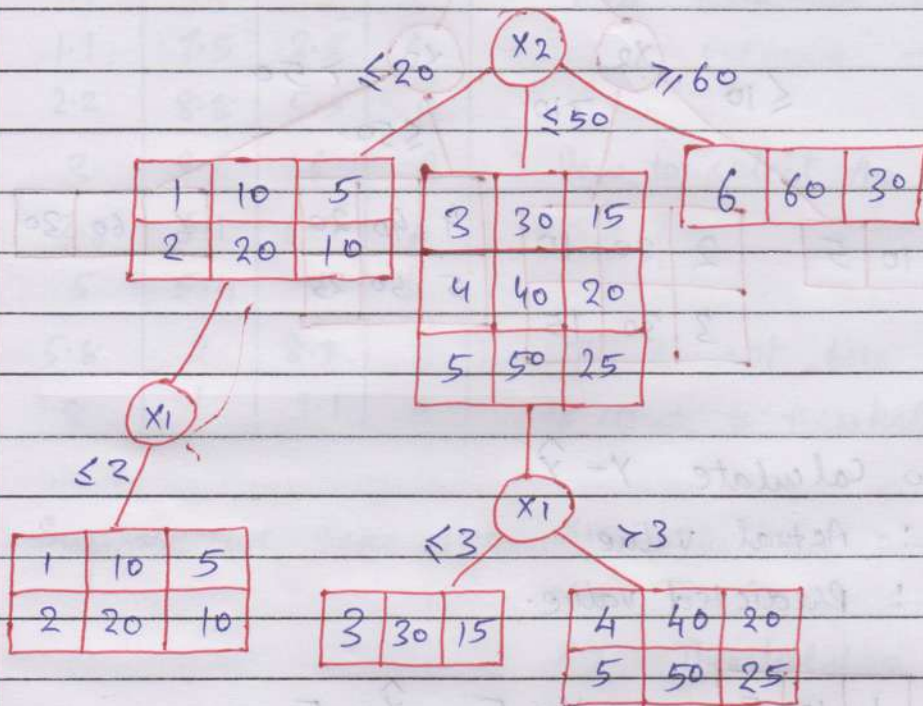 X2
≤20
≤50
≥60
1 10 5
2 20 10
3 30 15
4 40 20
5 50 25
6 60 30
X1
≤2
1 10 5
2 20 10
X1
≤3
>3
3 30 15
4 40 20
5 50 25